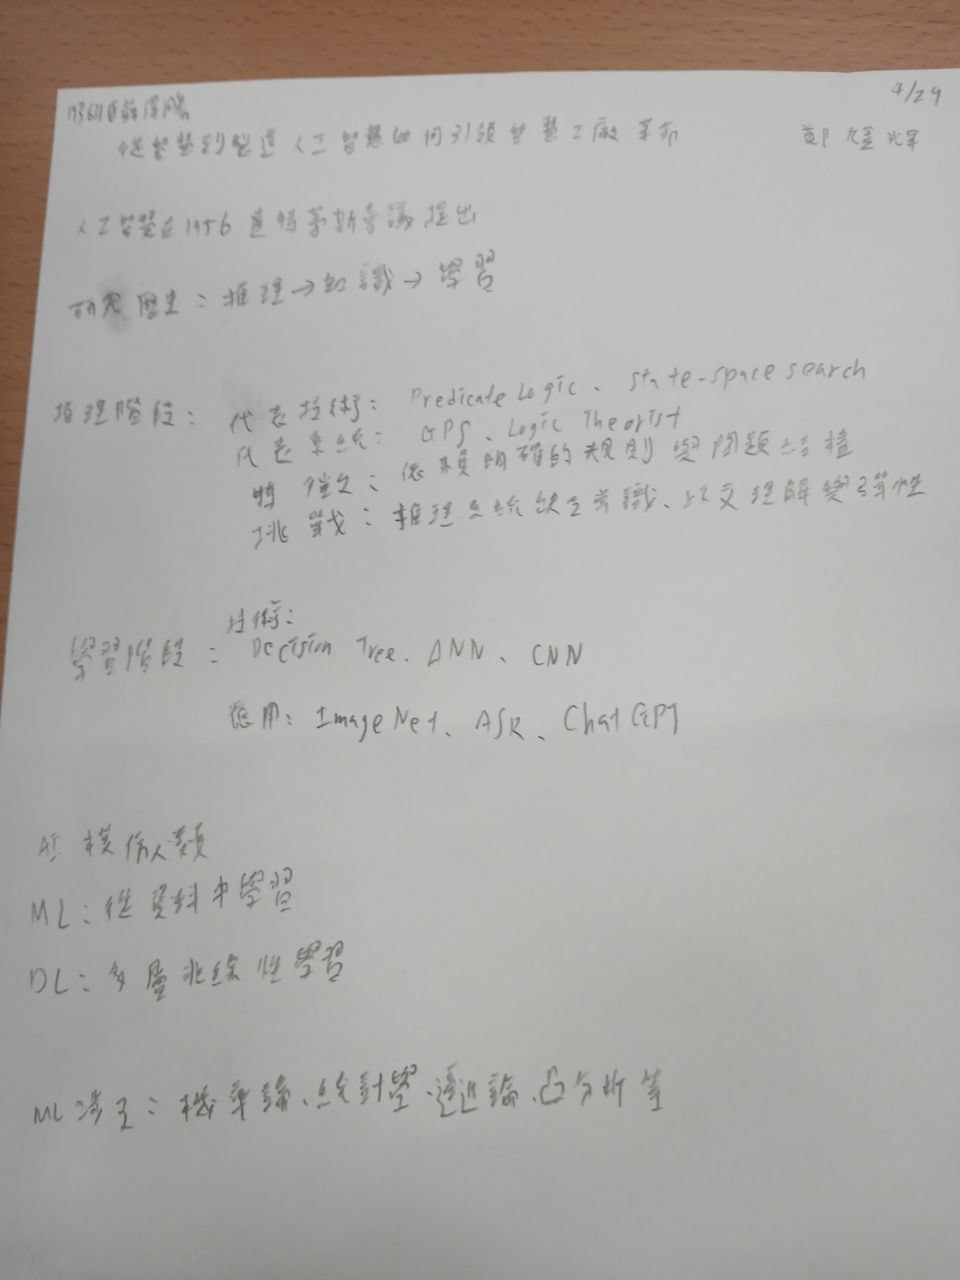 4/29
從智慧到製造 人工智慧如何引領智慧工廠革命
人工智慧在1956達特茅斯會議提出
研究歷史：推理→知識→學習
推理階段：代表技術：Predicate Logic、State-space search
代表系統：GPS、Logic Theorist
特徵：依賴明確的規則與問題結構
挑戰：推理系統缺乏常識、上文理解與彈性
學習階段：技術：
Decision Tree、ANN、CNN
應用：ImageNet、ASR、ChatGPT
AI 模仿人類
ML：從資料中學習
DL：多層非線性學習
ML涉及：機率論、統計學、逼近論、凸分析等